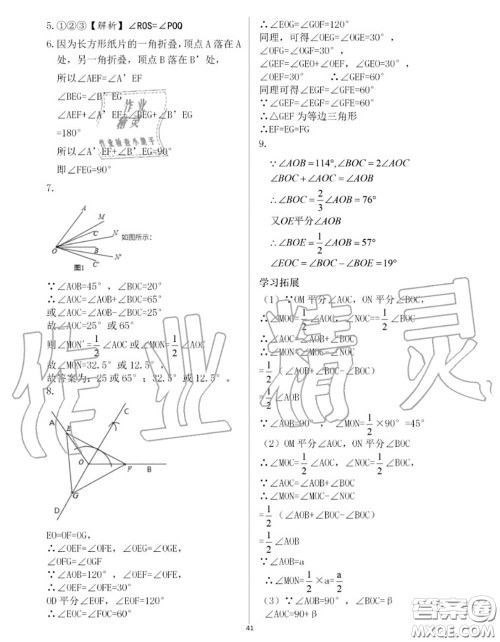 5. ①②③【解析】∠ROS=∠POQ
6. 因为长方形纸片的一角折叠，顶点 A 落在 A
处，另一角折叠，顶点 B 落在 B’处，
所以∠AEF=∠A’EF
∠BEG=∠B’EG
∠AEF+∠A’EF+∠BEG+∠B’EG
=180°
所以∠A’EF+∠B’EG=90°
即∠FEG=90°
7.
A
M
C
N
B
N'
O
如图所示：
图1
∵∠AOB=45°，∠BOC=20°
∴∠AOC=∠AOB+∠BOC=65°
或∠AOC=∠AOB-∠BOC=25°
故∠AOC=25° 或 65°
则∠MON'=1/2∠AOC 或∠MON=1/2∠AOC
故∠MON=32.5° 或 12.5°。
故答案为：25 或 65°；32.5° 或 12.5°。
8.
A
C
E
O
F
B
G
D
EO=OF=OG，
∴∠OEF=∠OFE，∠OEG=∠OGE，
∠OFG=∠OGF
∵∠AOB=120°，∠OEF=∠OFE
∴∠OEF=∠OFE=30°
OD 平分∠EOF，∠AOB=120°
∴∠EOC=∠FOC=60°
∴∠EOG=∠GOF=120°
同理，可得∠OEG=∠OGE=30°，
∠OFG=∠OGF=30°，
∠GEF=∠GEO+∠OEF，∠GEO=30°，
∠OEF=30° ∴∠GEF=60°
同理可得∠EGF=∠GFE=60°
∵∠GEF=∠EGF=∠GFE=60°
∴△GEF 为等边三角形
∴EF=EG=FG
9.
∵∠AOB=114°,∠BOC=2∠AOC
∠BOC+∠AOC=∠AOB
∴∠BOC=2/3∠AOB=76°
又OE平分∠AOB
∴∠BOE=1/2∠AOB=57°
∠EOC=∠BOC-∠BOE=19°
学习拓展
（1）∵OM 平分∠AOC，ON 平分∠BOC，
∴∠MOC=1/2∠AOC，∠NOC==1/2∠AOC
∴∠MON=∠MOC-∠NOC
=1/2（∠AOC-∠BOC）
=1/2∠AOB
∵∠AOB=90°，∴∠MON=1/2×90°=45°
（2）∵OM 平分∠AOC，ON 平分∠BOC
∴∠MOC=1/2∠AOC，∠NOC==1/2∠BOC
∵∠AOC=∠AOB+∠BOC
∴∠MON=∠MOC-∠NOC
=1/2（∠AOB+∠BOC-∠BOC）
=1/2∠AOB
∵∠AOB=a
∴∠MON=1/2×a=a/2
（3）∵∠AOB=90°，∠BOC=β
∠AOC=90+β
41
作业精灵
作业
精灵
作业检查小帮手
答案圈
MXQE.COM